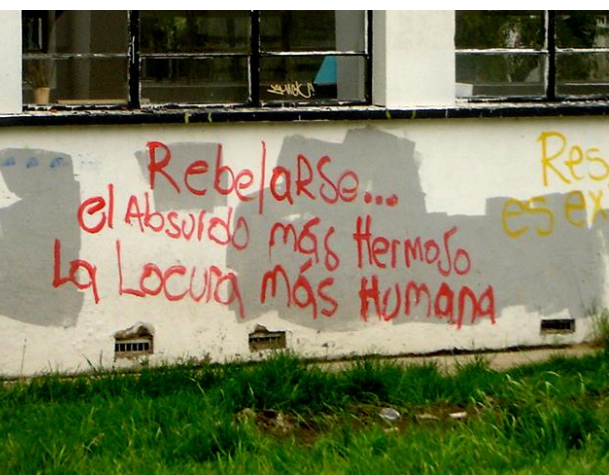 RebelaRSe...
el Absurdo más Hermoso
La Locura más Humana
Res
es ex